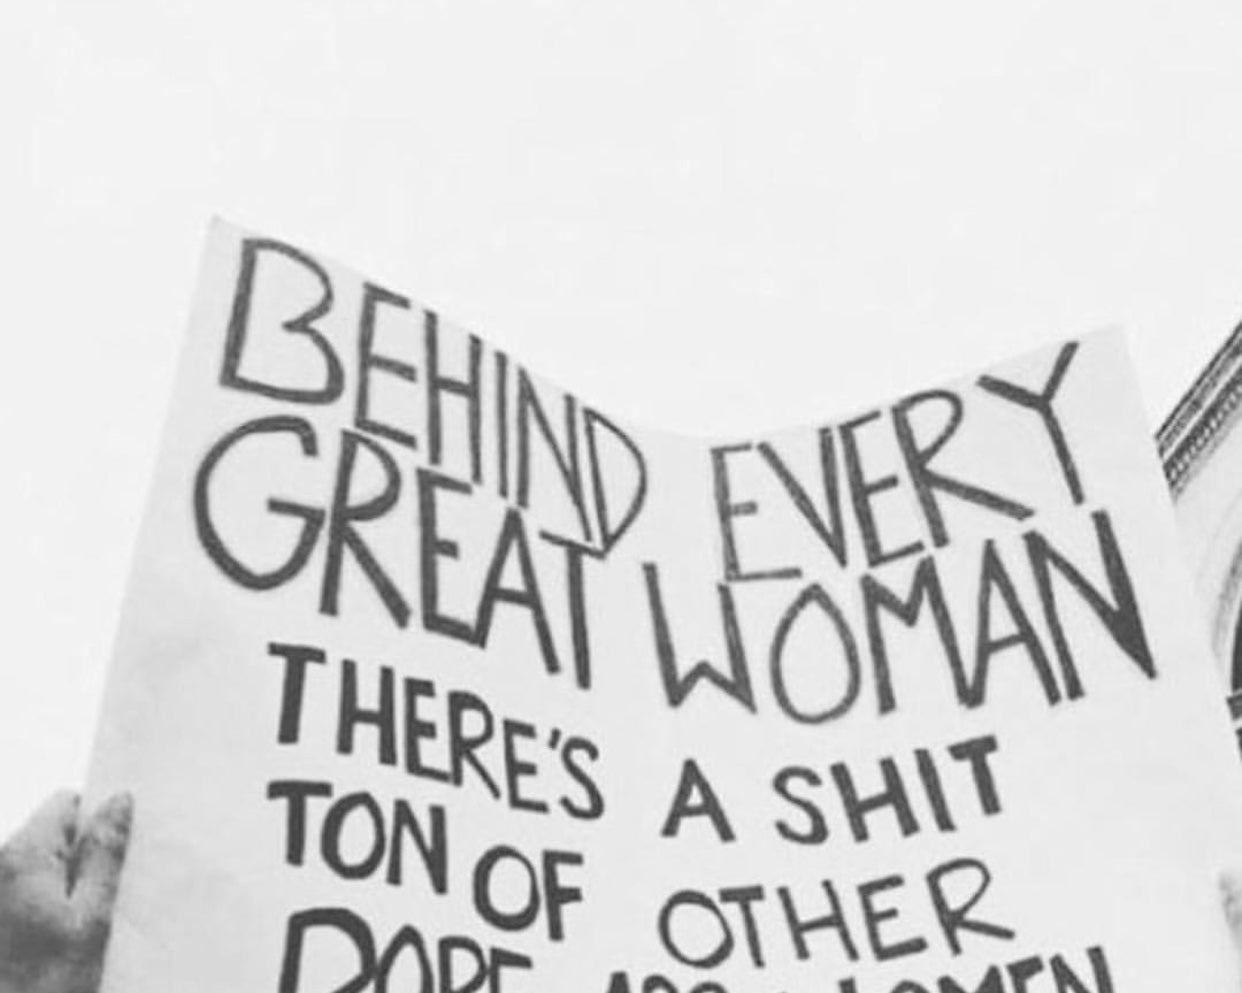 BEHIND EVERY
GREAT WOMAN
THERE'S A SHIT
TON OF OTHER
DOPE ASS WOMEN